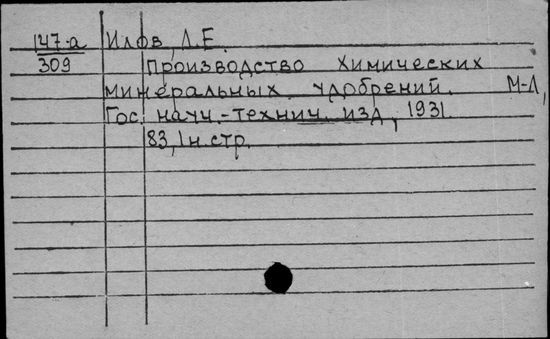 147-а Илов, Л.Е.
309 Производство химических
минеральных удобрений. М-Л,
Гос. науч.-технич. изд, 1931.
83, 1 н. стр.